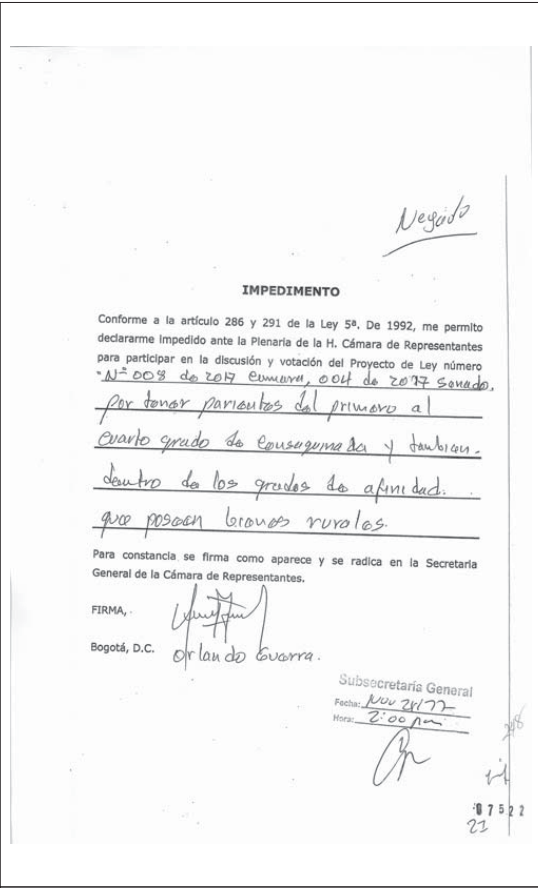 Negado
IMPEDIMENTO
Conforme a la artículo 286 y 291 de la Ley 5ª. De 1992, me permito
declararme impedido ante la Plenaria de la H. Cámara de Representantes
para participar en la discusión y votación del Proyecto de Ley número
Nº 008 de 2017 Camara, 004 de 2017 Senado,
por tener parientes del primero al
cuarto grado de consaguinada y tambien.
dentro de los grados de afinidad.
que poseen bienes rurales.
Para constancia se firma como aparece y se radica en la Secretaria
General de la Cámara de Representantes.
FIRMA,
Bogotá, D.C. Orlando Guerra.
Subsecretaría General
Fecha: Nov 28/17
Hora: 2:00 pm
248
07522
21